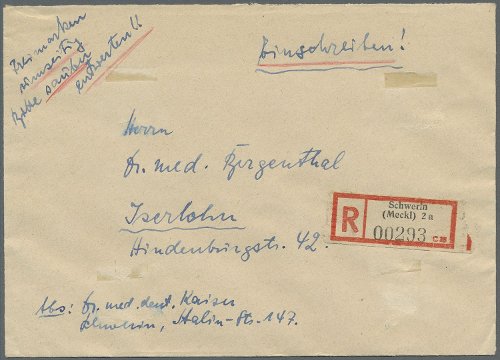 Freimarken
rückseitig
Bitte sauber
entwerten!!
Einschreiben!
Herrn
Dr. med. Bergenthal
Iserlohn
Hindenburgstr. 42.
R
Schwerin
(Meckl) 2 a
00293 C 28
Abs: Dr. med. dent. Kaiser
Schwerin, Stalin-Str. 147.